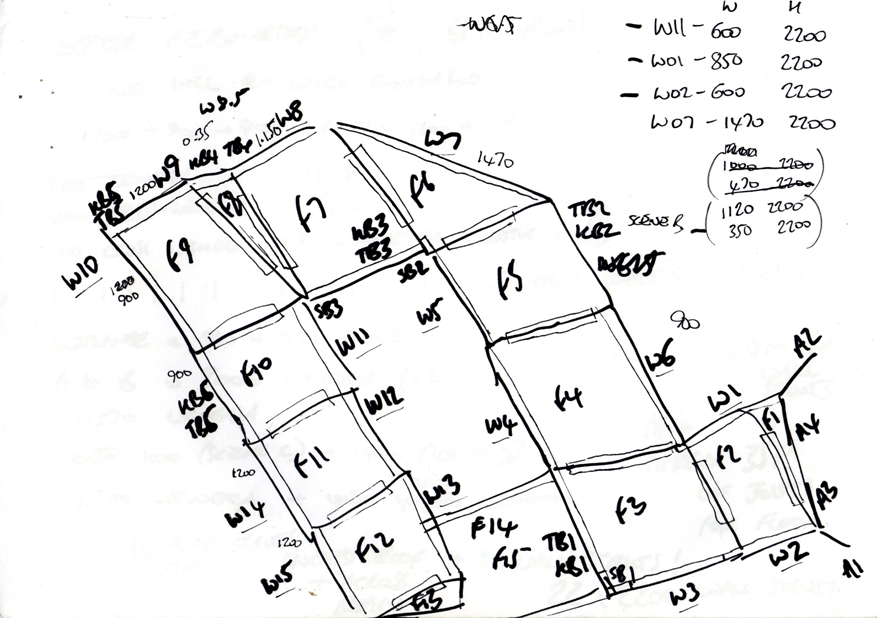 W H
- W11 - 600 2200
- W01 - 850 2200
- W02 - 600 2200
W07 - 1470 2200
1000 2200
470 2200
SCENE B - 1120 2200
350 2200
W8.5
0.35
1.150
W8
W9
KB4 TB4
1200
KB5
TB5
W7
1470
F8
F7
F6
F9
KB3
TB3
TB2
KB2
W10
1200
900
SB2
SB3
F5
W5
W11
900
900
W6
KB6
TB6
F10
W12
W4
F4
A2
W1
F1
A4
F11
1200
W14
W13
F2
A3
F3
F14
F15
TB1
KB1
SB1
1200
F12
W15
W2
A1
F13
W3